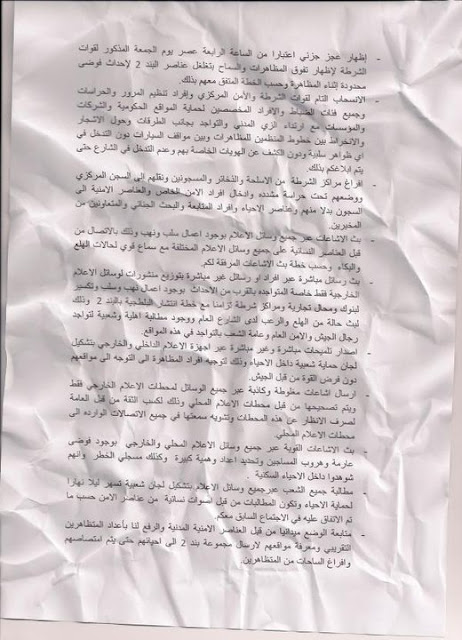 - إظهار عجز جزئي اعتبارا من الساعة الرابعة عصر يوم الجمعة المذكور لقوات
الشرطة لإظهار تفوق المظاهرات والسماح بتغلغل عناصر البند 2 لإحداث فوضى
محدودة إثناء المظاهرة وحسب الخطة المتفق معهم بذلك.
- الانسحاب التام لقوات الشرطة والأمن المركزي وإفراد تنظيم المرور والحراسات
وجميع فئات الضباط والإفراد المخصصين لحماية المواقع الحكومية والشركات
والمؤسسات مع ارتداء الزي المدني والتواجد بجانب الطرقات وحول الاشجار
والانخراط بين خطوط المنظمين للمظاهرات وبين مواقف السيارات دون التدخل في
اي ظواهر سلبية ودون الكشف عن الهويات الخاصة بهم وعدم التدخل في الشارع حتى
يتم ابلاغكم بذلك.
- افراغ مراكز الشرطة من الاسلحة والذخائر والمسجونين ونقلهم إلى السجن المركزي
ووضعهم تحت حراسة مشدده وادخال افراد الامن الخاص والعناصر الامنية الى
السجون بدلا منهم وعناصر الاحياء وافراد المتابعة والبحث الجنائي والمتعاونين من
المخبرين.
- بث الاشاعات عبر جميع وسائل الاعلام بوجود اعمال سلب ونهب وذلك بالاتصال من
قبل العناصر النسائية على جميع وسائل الاعلام المختلفة مع سماع قوي لحالات الهلع
والبكاء وحسب خطة بث الاشاعات المرفقة لكم.
- بث رسائل مباشرة عبر افراد او رسائل غير مباشرة بتوزيع منشورات لوسائل الاعلام
الخارجية فقط خاصة المتواجده بالقرب من الأحداث بوجود اعمال نهب وسلب وتكسير
لبنوك ومحال تجارية ومراكز شرطة تزامنا مع خطة انتشار البلطجية بالبند 2 وذلك
لبث حالة من الهلع والرعب لدى الشارع العام ووجود مطالبة اهلية وشعبية لتواجد
رجال الجيش والامن العام وعامة الشعب بالتواجد في هذه المواقع.
- اصدار تلميحات مباشرة وغير مباشرة عبر اجهزة الاعلام الداخلي والخارجي بتشكيل
لجان حماية شعبية داخل الاحياء وذلك لتوجيه افراد المظاهرة الى التوجه الى مواقعهم
دون فرض القوة من قبل الجيش.
- ارسال اشاعات مغلوطة وكاذبة عبر جميع الوسائل لمحطات الاعلام الخارجي فقط
ويتم تصحيحها من قبل محطات الاعلام المحلي وذلك لكسب الثقة من قبل العامة
لصرف الانظار عن هذه المحطات وتشويه سمعتها في جميع الاتصالات الوارده الى
محطات الاعلام المحلي.
- بث الاشاعات القوية عبر جميع وسائل الاعلام المحلي والخارجي بوجود فوضى
عارمة وهروب المساجين وتحديد اعداد وهمية كبيرة وكذلك مسجلي الخطر وانهم
شوهدوا داخل الاحياء السكنية .
- مطالبة جميع الشعب عبرجميع وسائل الاعلام بتشكيل لجان شعبية تسهر ليلا نهارا
لحماية الاحياء وتكون المطالبات من قبل اصوات نسائية من عناصر الامن حسب ما
تم الاتفاق عليه في الاجتماع السابق معكم.
- متابعة الوضع ميدانيا من قبل العناصر الامنية المدنية والرفع لنا بأعداد المتظاهرين
التقريبي ومعرفة مواقعهم لارسال مجموعة بند 2 الى احيائهم حتى يتم امتصاصهم
وافراغ الساحات من المتظاهرين.